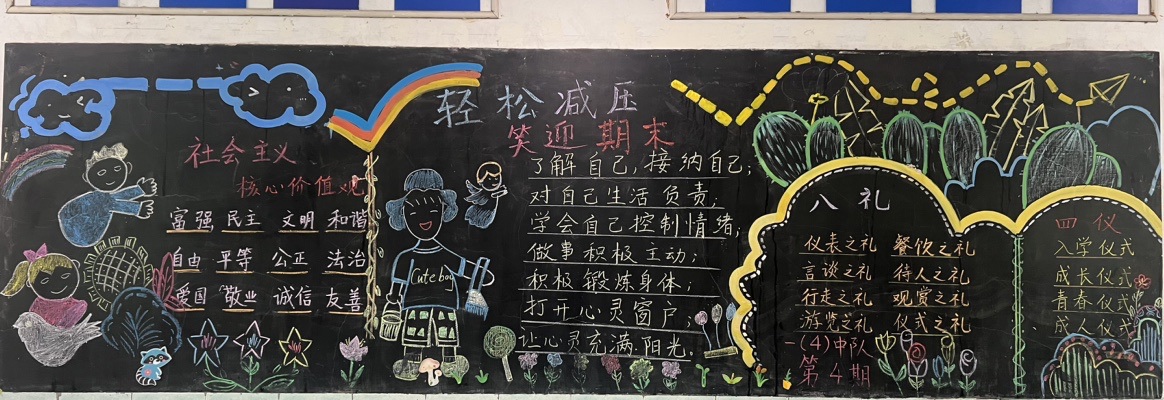 社会主义
核心价值观
富强 民主 文明 和谐
自由 平等 公正 法治
爱国 敬业 诚信 友善
轻松减压
笑迎期末
Cute boy
了解自己,接纳自己;
对自己生活负责;
学会自己控制情绪;
做事积极主动;
积极锻炼身体;
打开心灵窗户;
让心灵充满阳光.
八礼
仪表之礼 餐饮之礼
言谈之礼 待人之礼
行走之礼 观赏之礼
游览之礼 仪式之礼
一(4)中队
第4期
四仪
入学仪式
成长仪式
青春仪式
成人仪式